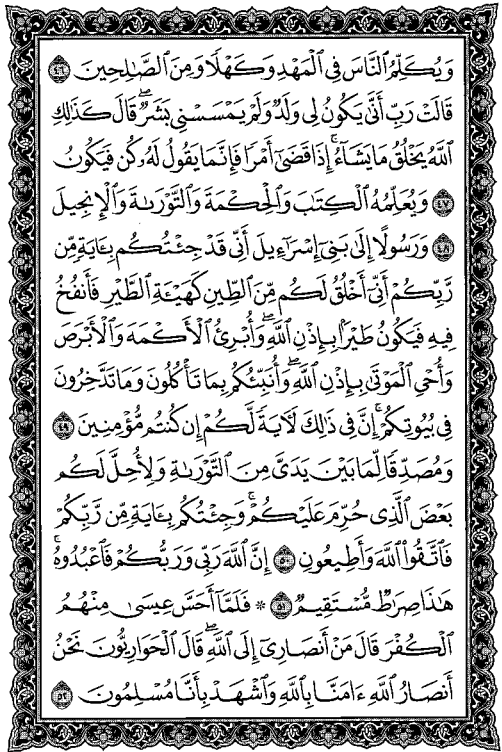 وَيُكَلِّمُ ٱلنَّاسَ فِي ٱلْمَهْدِ وَكَهْلًا وَمِنَ ٱلصَّٰلِحِينَ ٤٦
قَالَتْ رَبِّ أَنَّىٰ يَكُونُ لِي وَلَدٌ وَلَمْ يَمْسَسْنِي بَشَرٌ ۖ قَالَ كَذَٰلِكِ
ٱللَّهُ يَخْلُقُ مَا يَشَآءُ ۚ إِذَا قَضَىٰٓ أَمْرًا فَإِنَّمَا يَقُولُ لَهُۥ كُن فَيَكُونُ
٤٧ وَيُعَلِّمُهُ ٱلْكِتَٰبَ وَٱلْحِكْمَةَ وَٱلتَّوْرَىٰةَ وَٱلْإِنجِيلَ
٤٨ وَرَسُولًا إِلَىٰ بَنِيٓ إِسْرَٰٓءِيلَ أَنِّي قَدْ جِئْتُكُم بِـَٔايَةٍ مِّن
رَّبِّكُمْ أَنِّيٓ أَخْلُقُ لَكُم مِّنَ ٱلطِّينِ كَهَيْـَٔةِ ٱلطَّيْرِ فَأَنفُخُ
فِيهِ فَيَكُونُ طَيْرًۢا بِإِذْنِ ٱللَّهِ ۖ وَأُبْرِئُ ٱلْأَكْمَهَ وَٱلْأَبْرَصَ
وَأُحْيِ ٱلْمَوْتَىٰ بِإِذْنِ ٱللَّهِ ۖ وَأُنَبِّئُكُم بِمَا تَأْكُلُونَ وَمَا تَدَّخِرُونَ
فِي بُيُوتِكُمْ ۚ إِنَّ فِي ذَٰلِكَ لَـَٔايَةً لَّكُمْ إِن كُنتُم مُّؤْمِنِينَ ٤٩
وَمُصَدِّقًا لِّمَا بَيْنَ يَدَيَّ مِنَ ٱلتَّوْرَىٰةِ وَلِأُحِلَّ لَكُم
بَعْضَ ٱلَّذِي حُرِّمَ عَلَيْكُمْ ۚ وَجِئْتُكُم بِـَٔايَةٍ مِّن رَّبِّكُمْ
فَٱتَّقُوا۟ ٱللَّهَ وَأَطِيعُونِ ٥٠ إِنَّ ٱللَّهَ رَبِّي وَرَبُّكُمْ فَٱعْبُدُوهُ ۗ
هَٰذَا صِرَٰطٌ مُّسْتَقِيمٌ ٥١ ۞ فَلَمَّآ أَحَسَّ عِيسَىٰ مِنْهُمُ
ٱلْكُفْرَ قَالَ مَنْ أَنصَارِيٓ إِلَى ٱللَّهِ ۖ قَالَ ٱلْحَوَارِيُّونَ نَحْنُ
أَنصَارُ ٱللَّهِ ءَامَنَّا بِٱللَّهِ وَٱشْهَدْ بِأَنَّا مُسْلِمُونَ ٥٢